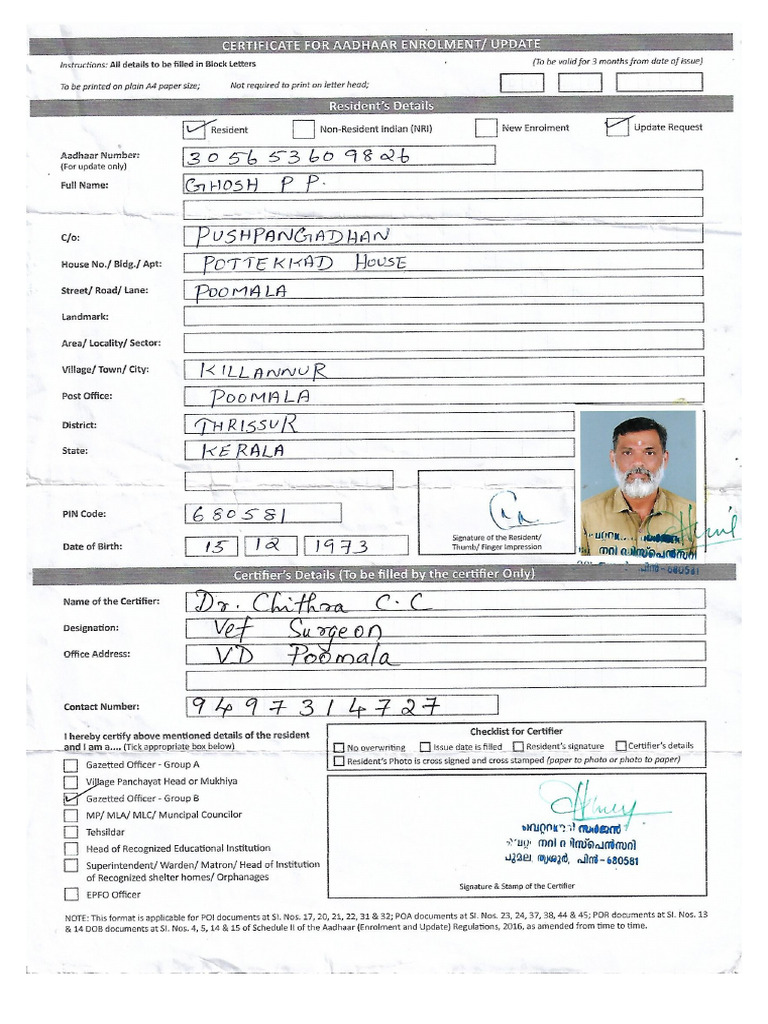 CERTIFICATE FOR AADHAAR ENROLMENT/ UPDATE
Instructions: All details to be filled in Block Letters (To be valid for 3 months from date of issue)
To be printed on plain A4 paper size; Not required to print on letter head;
Resident's Details
Resident Non-Resident Indian (NRI) New Enrolment Update Request
Aadhaar Number: 3056 5360 9826
(For update only)
Full Name: GHOSH P P.
C/o: PUSHPANGADHAN
House No./ Bldg./ Apt: POTTEKKAD HOUSE
Street/ Road/ Lane: POOMALA
Landmark:
Area/ Locality/ Sector:
Village/ Town/ City: KILLANNUR
Post Office: POOMALA
District: THRISSUR
State: KERALA
PIN Code: 680581
Signature of the Resident/
Thumb/ Finger Impression
Date of Birth: 15 12 1973
പിൻ -680581
Certifier's Details (To be filled by the certifier Only)
Name of the Certifier: Dr. Chithra C.C
Designation: Vet Surgeon
Office Address: VD Poomala
Contact Number: 9497314727
I hereby certify above mentioned details of the resident
and I am a.... (Tick appropriate box below)
Checklist for Certifier
No overwriting Issue date is filled Resident's signature Certifier's details
Resident's Photo is cross signed and cross stamped (paper to photo or photo to paper)
Gazetted Officer - Group A
Village Panchayat Head or Mukhiya
Gazetted Officer - Group B
MP/ MLA/ MLC/ Muncipal Councilor
Tehsildar
Head of Recognized Educational Institution
Superintendent/ Warden/ Matron/ Head of Institution
of Recognized shelter homes/ Orphanages
EPFO Officer
സർജൻ
പൂമല, തൃശൂർ, പിൻ -680581
Signature & Stamp of the Certifier
NOTE: This format is applicable for POI documents at Sl. Nos. 17, 20, 21, 22, 31 & 32; POA documents at Sl. Nos. 23, 24, 37, 38, 44 & 45; POR documents at Sl. Nos. 13
& 14 DOB documents at Sl. Nos. 4, 5, 14 & 15 of Schedule II of the Aadhaar (Enrolment and Update) Regulations, 2016, as amended from time to time.